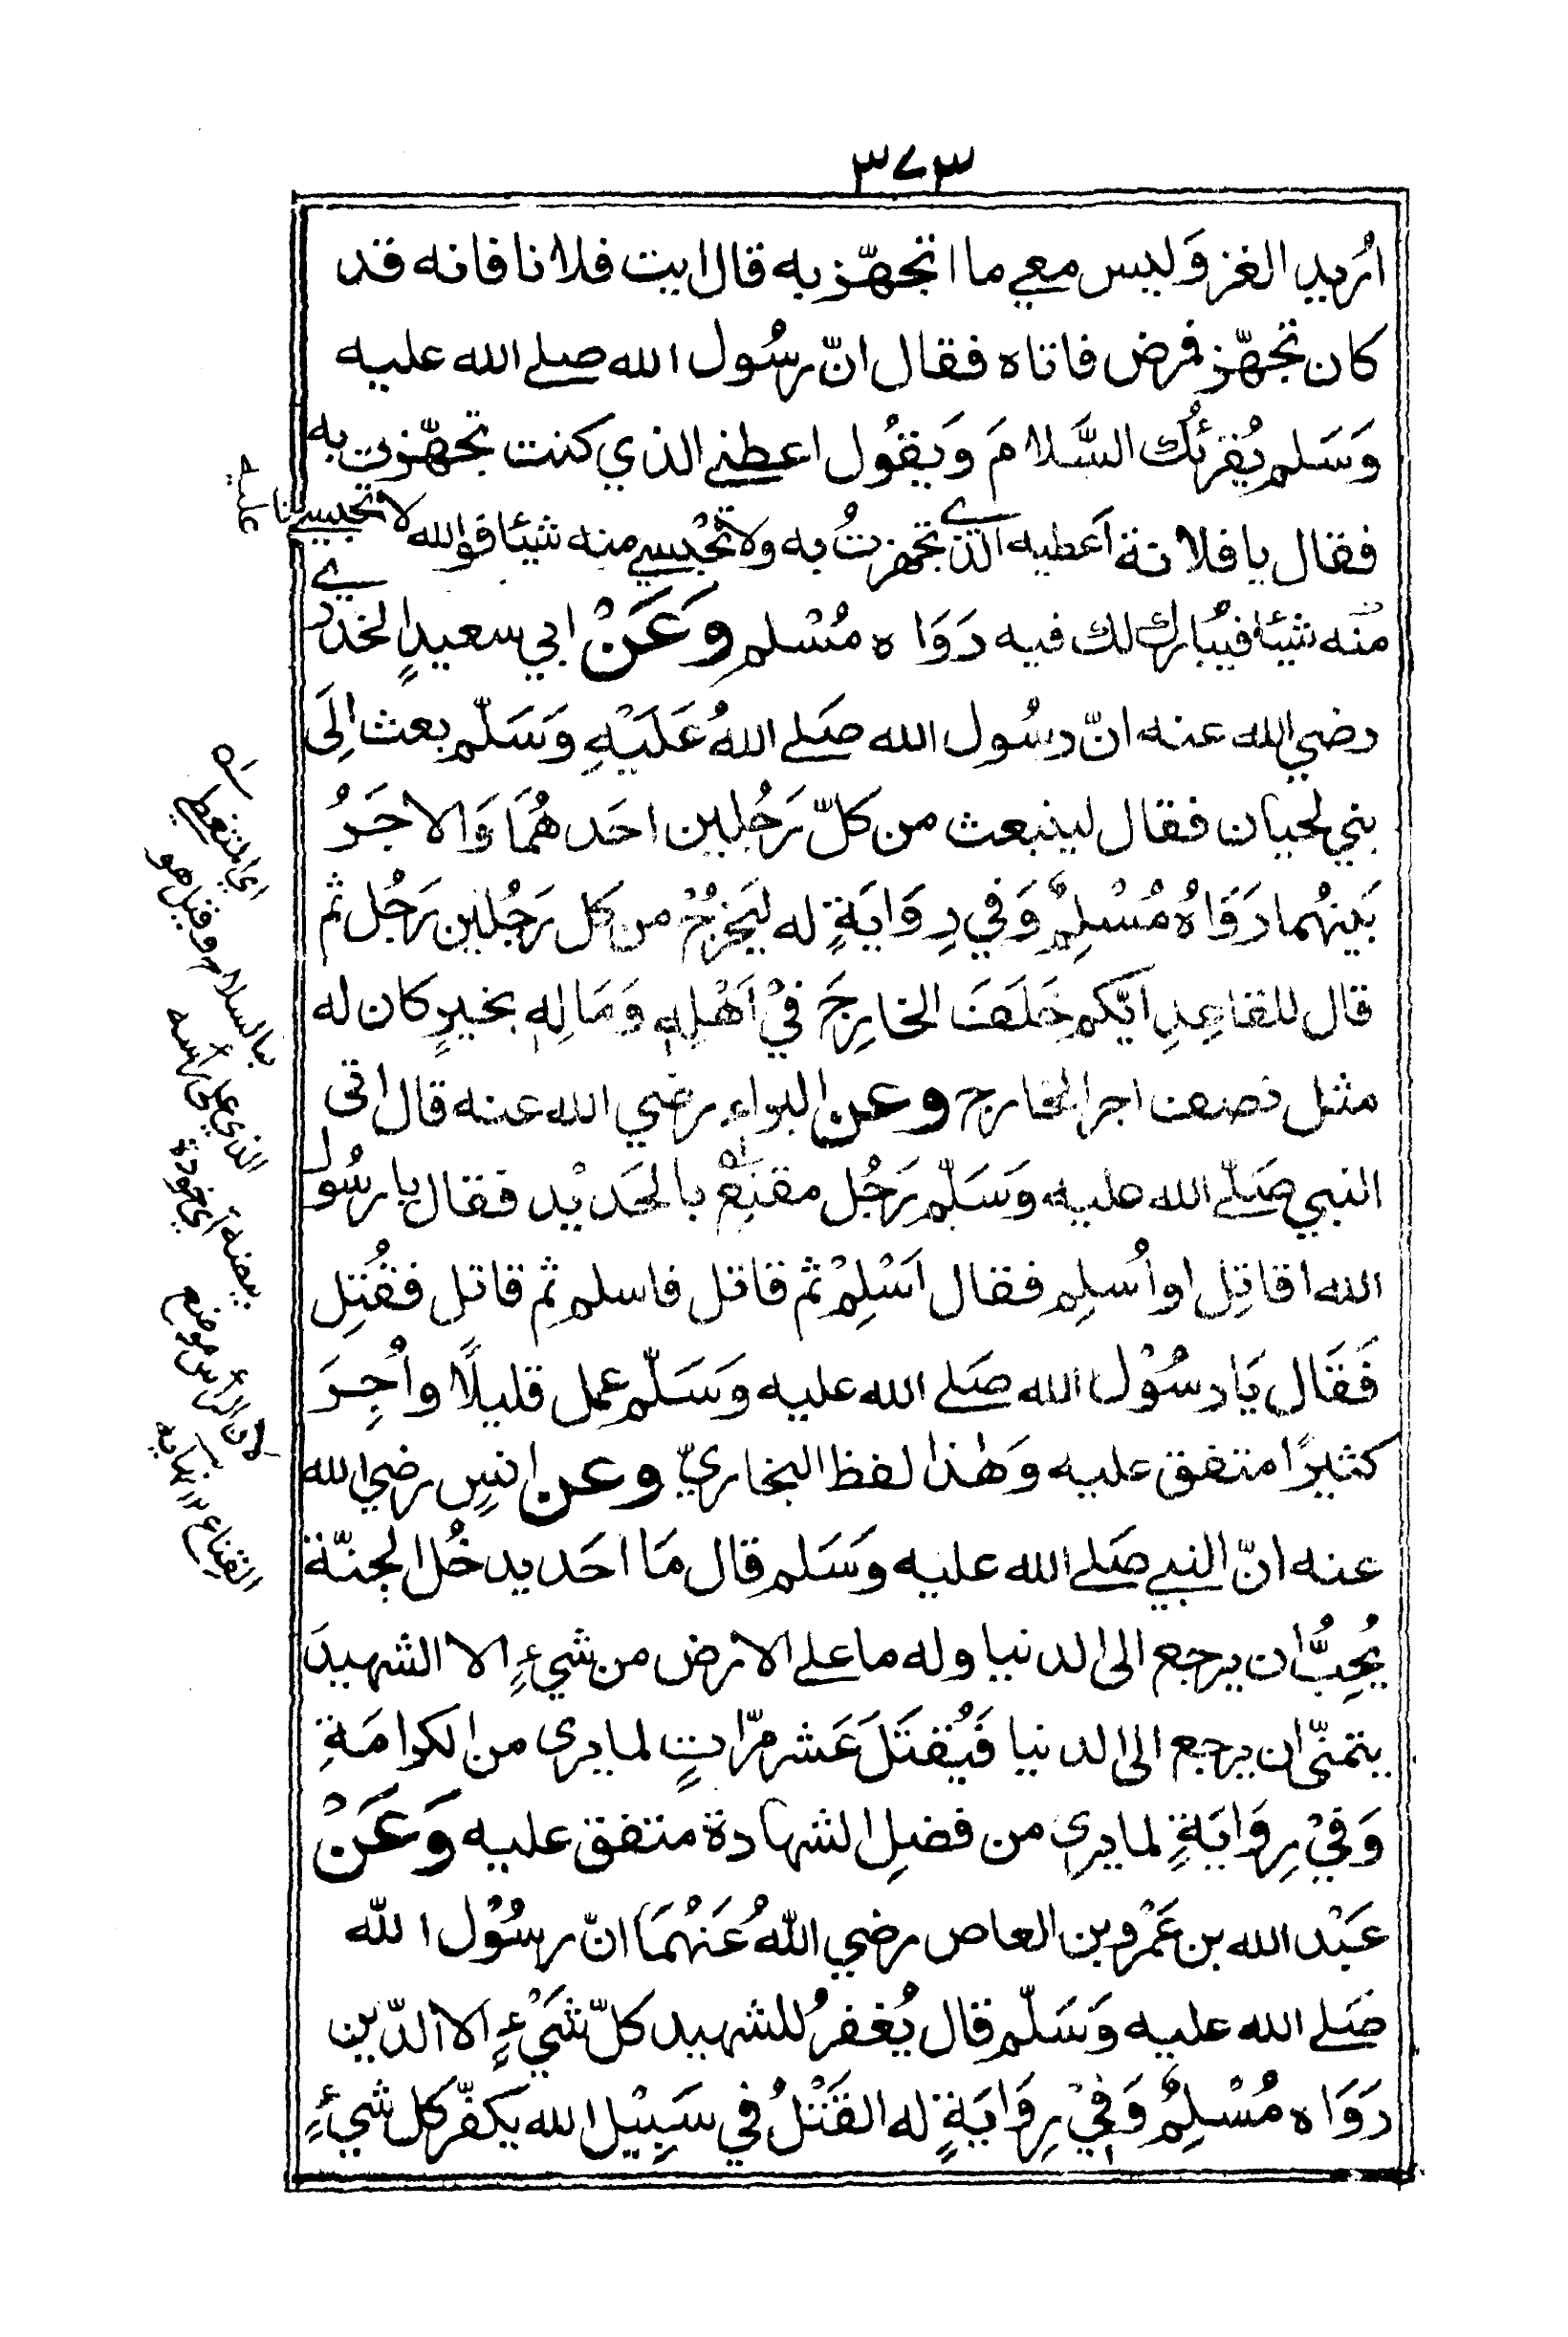 ٣٧٣
اُريد الغزوَ ليس معي ما اتجهّز به قال ايت فلانا فانه قد
كان تجهّز فمرض فاتاه فقال انّ رسُول الله صلے الله عليه
وَسَلم يُقرئُك السَّلامَ وَيقُول اعطنے الذي كنت تجهّزت به
فقال يا فلانة اَعطيه الذے تجهزتُ به ولا تحْبسے منه شيئا فوالله لا تحبسے
منه شيئا فيُبارك لك فيه رَوَاه مُسْلم وَعَنْ ابي سعيدٍ الخدرے
رضي الله عنه انّ رسُول الله صَلے اللهُ عَلَيْهِ وَسَلّم بعث اِلَى
بني لحيان فقال لينبعث من كلّ رَجُلين احَدهُمَا وَالاجَرُ
بَينهُما رَوَاهُ مُسْلِمٌ وَفي رِوَايَةٍ له ليَخرُجْ من كل رَجُلين رَجُل ثم
قال للقاعِدِ اَيّكم خَلَفَ الخارِجَ فيْ اَهْلِهٖ وَمَالِهٖ بخيرٍ كان له
مثل نصف اجر الخارج وعن البراءِ رضي الله عنه قال اتى
النبي صَلّے الله عليه وَسَلّم رَجُل مقنع بالحَديْد فقال يا رسُول
الله اقاتِل او اُسلِم فقال اَسْلِمْ ثم قاتل فاسلم ثم قاتل فقُتِل
فَقَال يَا رسُوْل الله صَلے الله عليه وَسَلّم عمل قليلًا واُجِرَ
كثيرًا متفق عليه وَهٰذا لفظ البخاريّ وعن انسٍ رضي الله
عنه انّ النبي صَلے الله عليه وَسَلم قال مَا احَد يدخُل الجنّة
يُحِبُّ ان يرجع الى الدنيا وله ما علے الارض من شيءٍ الا الشهيدَ
يتمنّى ان يرجع الى الدنيا فَيُقتَلَ عَشر مرّاتٍ لما يرى من الكرامَةِ
وَفيْ رِوَايَةٍ لما يرى من فضلِ الشهادة متفق عليه وَعَنْ
عَبْد الله بن عَمْرو بن العاص رضي اللّٰهُ عَنْهُمَا انّ رسُوْل اللّٰه
صَلے الله عليه وَسَلّم قال يُغفرُ للشهيد كلّ شَيْءٍ الا الدّين
رَوَاه مُسْلِمٌ وَفيْ رِوَايَةٍ له القَتْلُ في سَبِيْل الله يكفّر كل شيءٍ
عليه
اي المتغطي
بالسلاح وقيل هو
الذي على رأسه
بيضة أي خودة
لان الرأس موضع
القناع نهايه